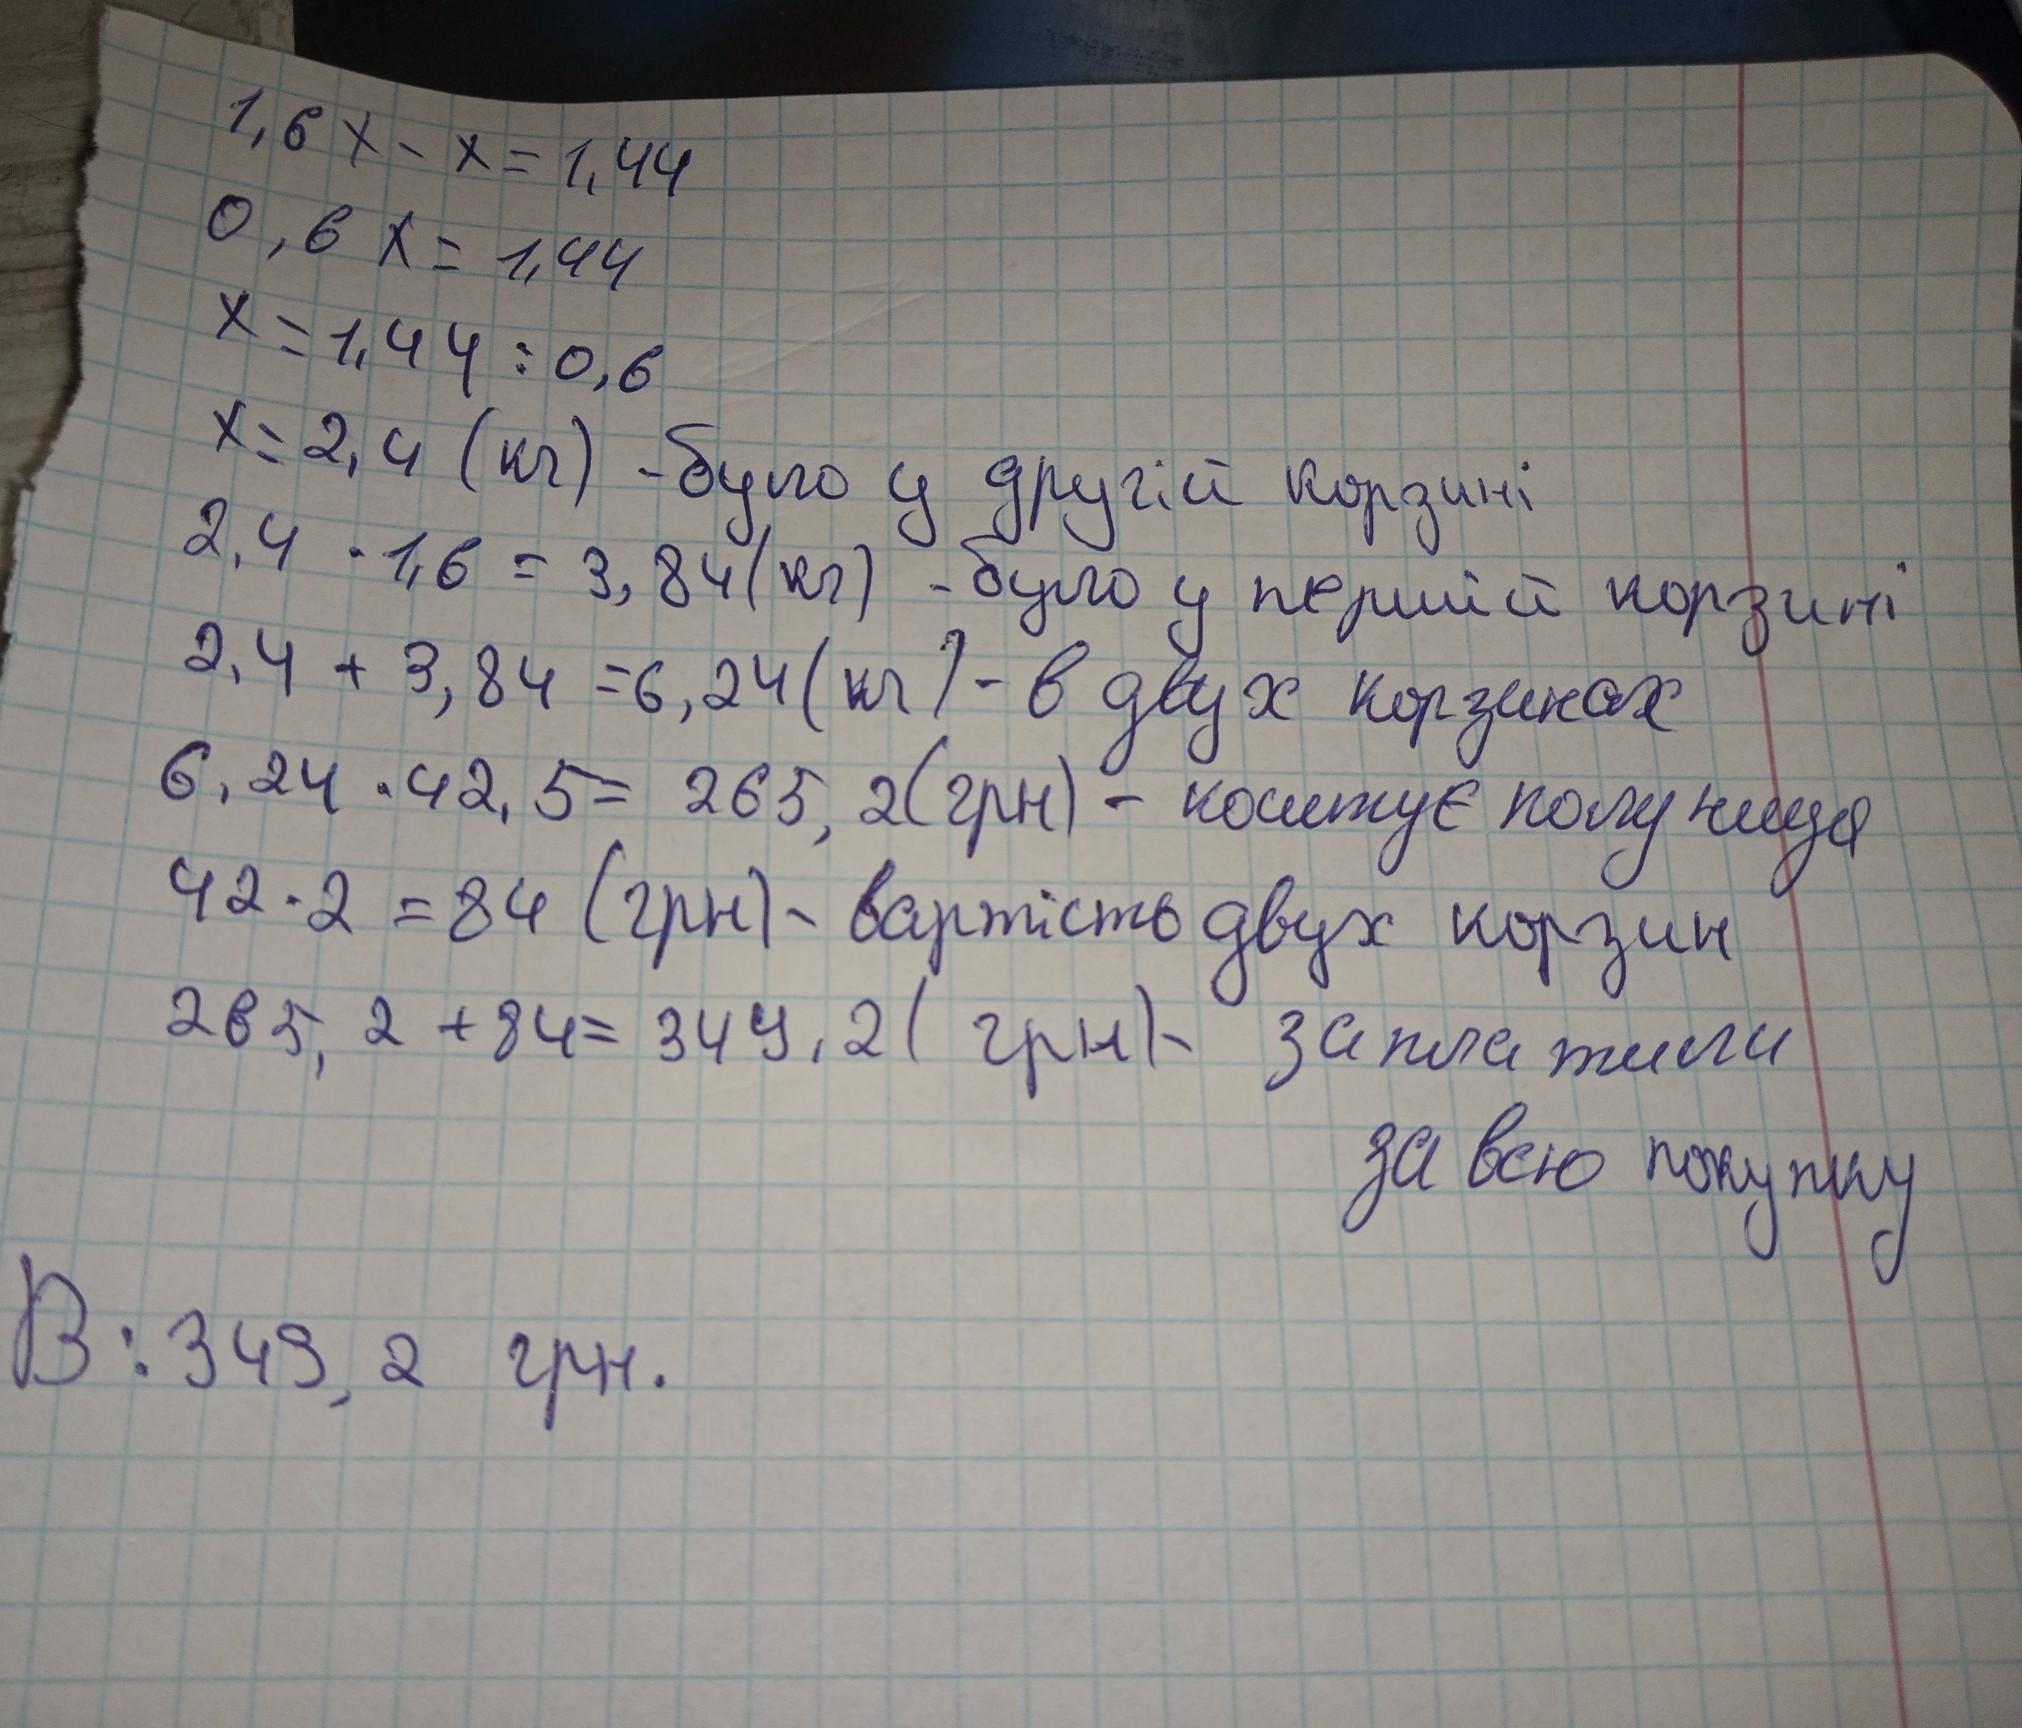 1,6х - х = 1,44
0,6 х = 1,44
х = 1,44 : 0,6
х = 2,4 (кг) - було у другій корзині
2,4 · 1,6 = 3,84 (кг) - було у першій корзині
2,4 + 3,84 = 6,24 (кг) - в двух корзинах
6,24 · 42,5 = 265,2 (грн) - коштує полуниця
42 · 2 = 84 (грн) - вартість двух корзин
265,2 + 84 = 349,2 (грн) - заплатили
за всю покупку
В: 349,2 грн.